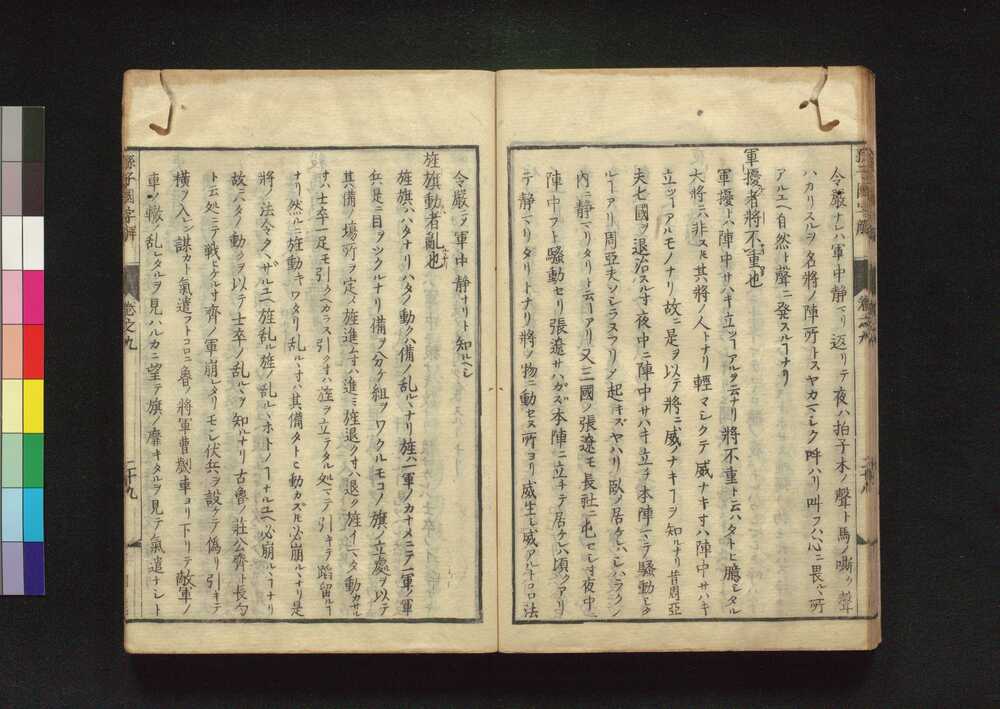 令嚴ナレハ軍中靜マリ返リテ夜ハ拍子木ノ聲ト馬ノ嘶ク聲
ハカリスルヲ名將ノ陣所トスヤカマシク呼ハリ叫フハ心ニ畏ルヽ所
アルユヘ自然ト聲ニ発スルヿナリ
軍擾者將不重也
軍擾トハ陣中サハキ立ツヿアルヲ云ナリ將不重ト云ハタトヒ臆シタル
大將ニハ非スモ其將ノ人トナリ輕マシクテ威ナキ寸ハ陣中サハキ
立ツヿアルモノナリ故ニ是ヲ以テ將ニ威ノナキヿヲ知ルナリ昔周亞
夫七國ヲ退治スル寸夜中ニ陣中サハキ立チ本陣マテ騒動セ
ルヿアリ周亞夫ソシラヌフリノ起キスヤハリ臥ノ居ケレハシハラクノ
内ニ靜マリタリト云ヿアリ又三國ノ張遼モ長社ニ屯セシ寸夜中ニ
陣中フト騒動セリ張遼サハガズ本陣ニ立チテ居ケレハ頃クアリ
テ靜マリタリトナリ將ノ物ニ動セヌ所ヨリ威生シ威アルトコロ法
令嚴ニノ軍中靜ナリト知ルヘシ
旌旗動者亂也
旌旗ハハタナリハタノ動クハ備ノ乱ルヽナリ旌ハ一軍ノカナメニテ一軍ノ軍
兵是ニ目ヲツクルナリ備ヲ分ケ組ヲワクルモコノ旗ノ立處ヲ以テ
其備ノ場所ヲ定メ旌進ム寸ハ進ミ旌退ク寸ハ退ク旌イマタ動カサル
寸ハ士卒一足モ引クヘカラス引ク寸ハ旌ヲ立テタル処マテ引キテ蹈留ルヿ
ナリ然ルニ旌動キワタリ乱ルヽ寸ハ其備タトヒ動カズモ必崩ルヽナリ是
將ノ法令タヽザルユヘ旌乱ル旌ノ乱ルヽホトノヿナルユヘ必崩ルヽヿナリ
故ニハタノ動クヲ以テ士卒ノ乱ルヽヲ知ルナリ古魯ノ莊公齊ト長勺
ト云処ニテ戦ヒケル寸齊ノ軍崩レタリモシ伏兵ヲ設ケテ偽リ引キテ
横ヲ入レン謀カト氣遣フトコロニ魯ノ將軍曹劌車ヨリ下リテ敵軍ノ
車ノ轍ノ乱レタルヲ見ハルカニ望テ旗ノ靡キタルヲ見テ氣遣ナシト
孫子國字解
卷之九
二十九